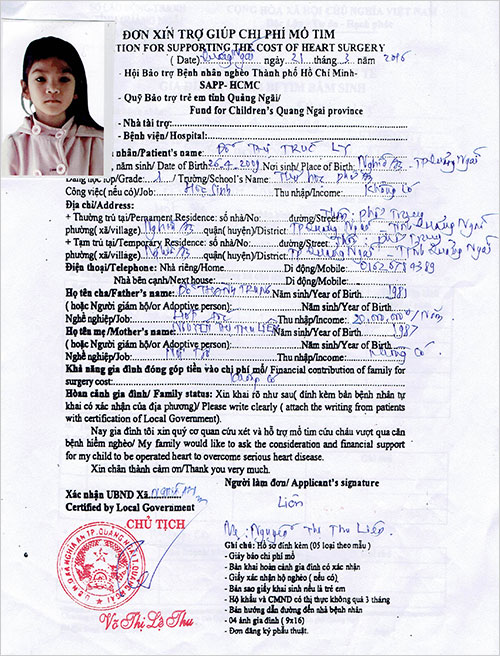 ĐƠN XIN TRỢ GIÚP CHI PHÍ MỔ TIM
TION FOR SUPPORTING THE COST OF HEART SURGERY
( Date) Quảng Ngãi ngày 21 tháng 3 năm 2016
- Hội Bảo trợ Bệnh nhân nghèo Thành phố Hồ Chí Minh-
SAPP- HCMC
- Quỹ Bảo trợ trẻ em tỉnh Quảng Ngãi/
Fund for Children's Quang Ngai province
- Nhà tài trợ:
- Bệnh viện/ Hospital:
nhân/Patient's name: ĐỖ THỊ TRÚC LY
năm sinh/ Date of Birth 26.4.2009 Nơi sinh/ Place of Birth Nghĩa An - TP Quảng Ngãi
Đang học lớp/Grade: 1 / Trường/School's Name: Tiểu học phổ An
Công việc( nếu có)/Job: Học Sinh Thu nhập/Income: Không Có
Địa chỉ/Address:
+ Thường trú tại/Pernament Residence: số nhà/No: đường/Street: Thôn: phổ Trung
phường( xã/village) Nghĩa An quận( huyện)/District: TP Quảng Ngãi - Tỉnh Quảng Ngãi
+ Tạm trú tại/Temporary Residence: số nhà/No: đường/Street: Thôn phổ Trung
phường( xã/village) Nghĩa An quận( huyện)/District: TP Quảng Ngãi - Tỉnh Quảng Ngãi
Điện thoại/Telephone: Nhà riêng/Home: Di động/Mobile:
Nhà bên cạnh/Next house: Di động/Mobile:
Họ tên cha/Father's name: ĐỖ THANH TRUNG Năm sinh/Year of Birth
( hoặc Người giám hộ/or Adoptive person): Năm sinh/Year of Birth
Nghề nghiệp/Job: Thu nhập/Income: 20,000,000/Năm
Họ tên mẹ/Mother's name: NGUYỄN THỊ THU LIÊN Năm sinh/Year of Birth 1987
( hoặc Người giám hộ/or Adoptive person): Năm sinh/Year of Birth
Nghề nghiệp/Job: Nội Trợ Thu nhập/Income: Không Có
Khả năng gia đình đóng góp tiền vào chi phí mổ/ Financial contribution of family for
surgery cost: Không Có
Hoàn cảnh gia đình/ Family status: Xin khai rõ như sau( đính kèm bản bệnh nhân tự
khai có xác nhận của địa phương)/ Please write clearly ( attach the writing from patients
with certification of Local Government).
Nay gia đình tôi xin quý cơ quan cứu xét và hỗ trợ mổ tim cứu cháu vượt qua căn
bệnh hiểm nghèo/ My family would like to ask the consideration and financial support
for my child to be operated heart to overcome serious heart disease.
Xin chân thành cảm ơn/Thank you very much.
Người làm đơn/ Applicant's signature
Xác nhận UBND Xã Nghĩa An
Certified by Local Government
Liên
CHỦ TỊCH
Mẹ: Nguyễn Thị Thu Liên
Ghi chú: Hồ sơ đính kèm (05 loại theo mẫu )
- Giấy báo chi phí mổ
- Bản khai hoàn cảnh gia đình có xác nhận
- Giấy xác nhận hộ nghèo ( nếu có)
- Bản sao giấy khai sinh nếu là trẻ em
- Hộ khẩu và CMND có thị thực không quá 3 tháng
- Bản hướng dẫn đường đến nhà bệnh nhân
- 04 ảnh gia đình ( 9x16)
- Đơn đăng ký phẫu thuật.
Võ Thị Lệ Thu